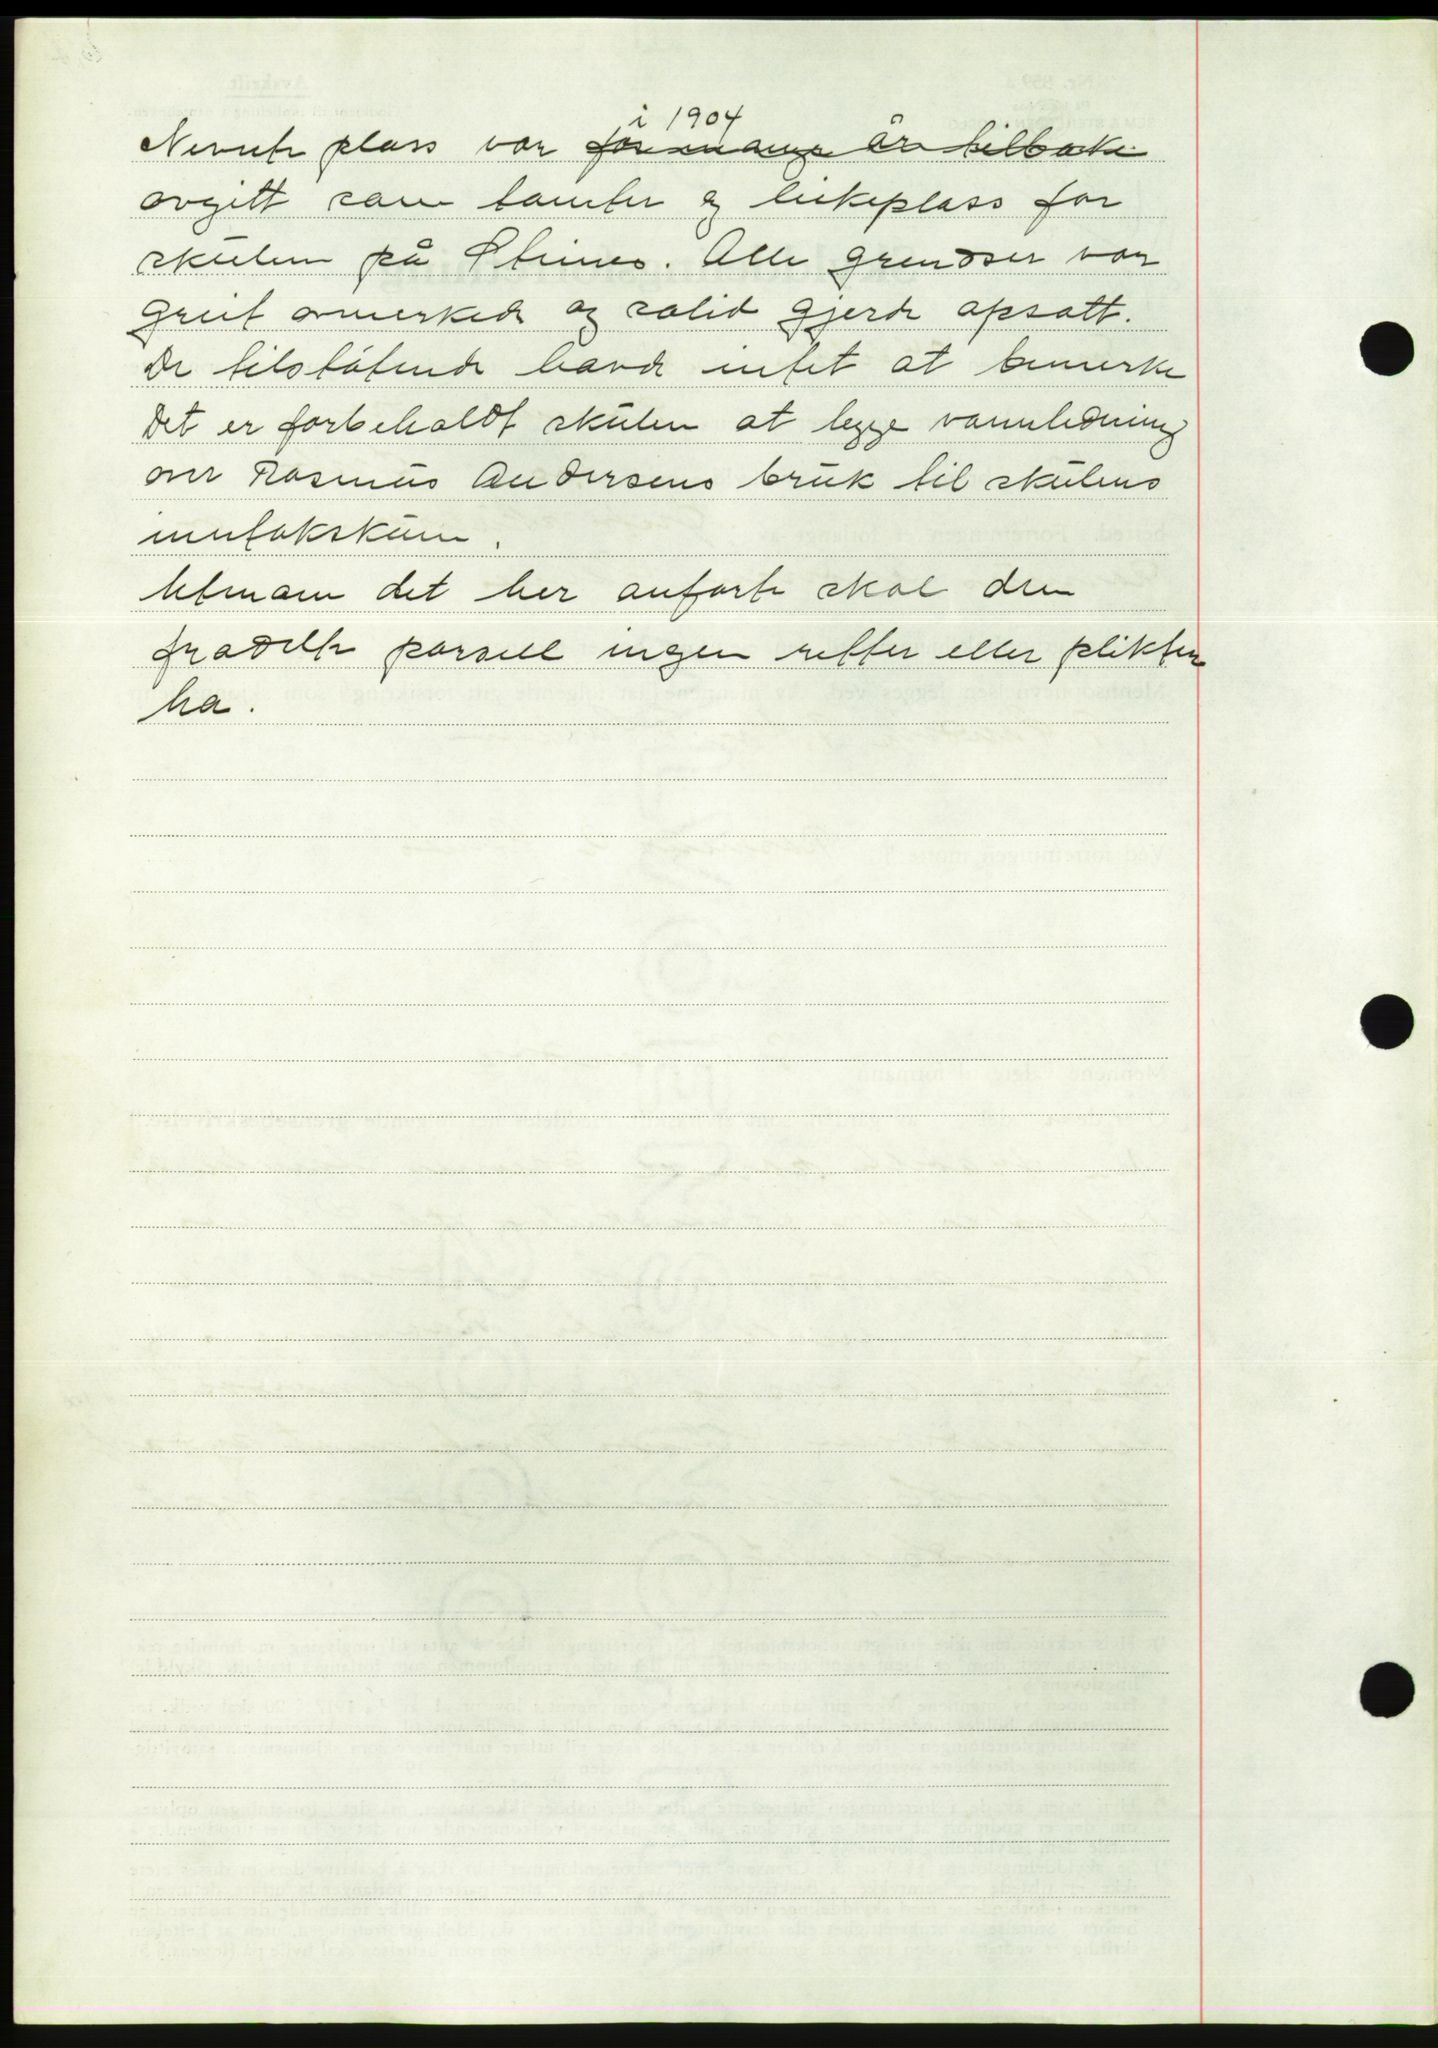 i 1904
Nevnte plass var for mange år tilbake
avgitt som tomter og leikeplass for
skulen på Steines. Alle grendser var
greit avmerkede og solid gjerde opsatt.
De tilstøtende havde intet at bemerke
Det er forbeholdt skulen at legge vannledning
over Rasmus Andersens bruk til skulens
inntakskum.
Utenom det her anførte skal den
fradelte parsell ingen retter eller plikter
ha.